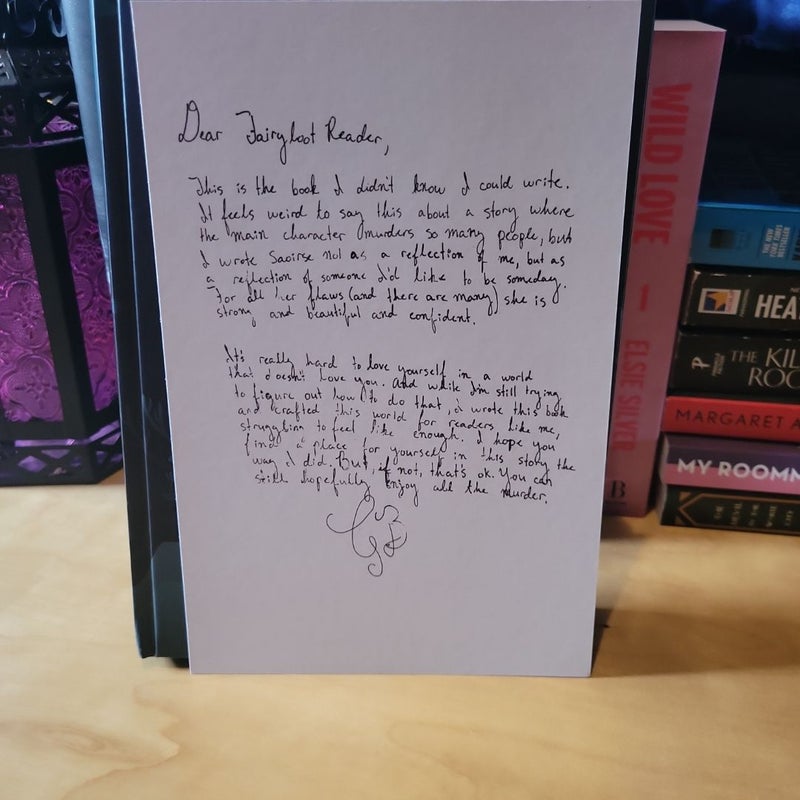 Dear Fairyloot Reader,
This is the book I didn't know I could write.
It feels weird to say this about a story where
the main character murders so many people, but
I wrote Saoirse not as a reflection of me, but as
a reflection of someone I'd like to be someday.
For all her flaws (and there are many) she is
strong and beautiful and confident.
It's really hard to love yourself in a world
that doesn't love you. And while I'm still trying
to figure out how to do that, I wrote this book
and crafted this world for readers like me,
struggling to feel like enough. I hope you
find a place for yourself in this story the
way I did. But, if not, that's ok. You can
still hopefully enjoy all the murder.
WILD LOVE
ELSIE SILVER
HEA
THE KIL
ROO
MARGARET A
MY ROOMM
THE DEVIL